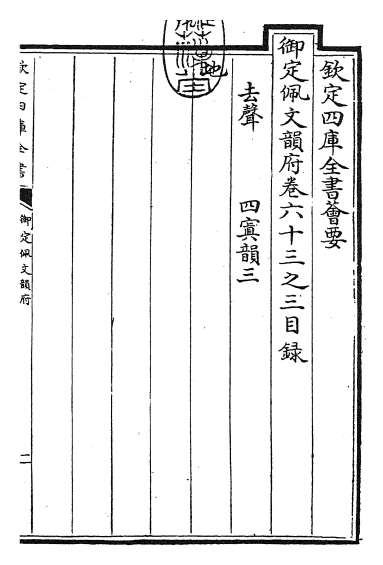 欽定四庫全書薈要
御定佩文韻府卷六十三之三目録
去聲　四寘韻三
地
欽定四庫全書
御定佩文韻府
二